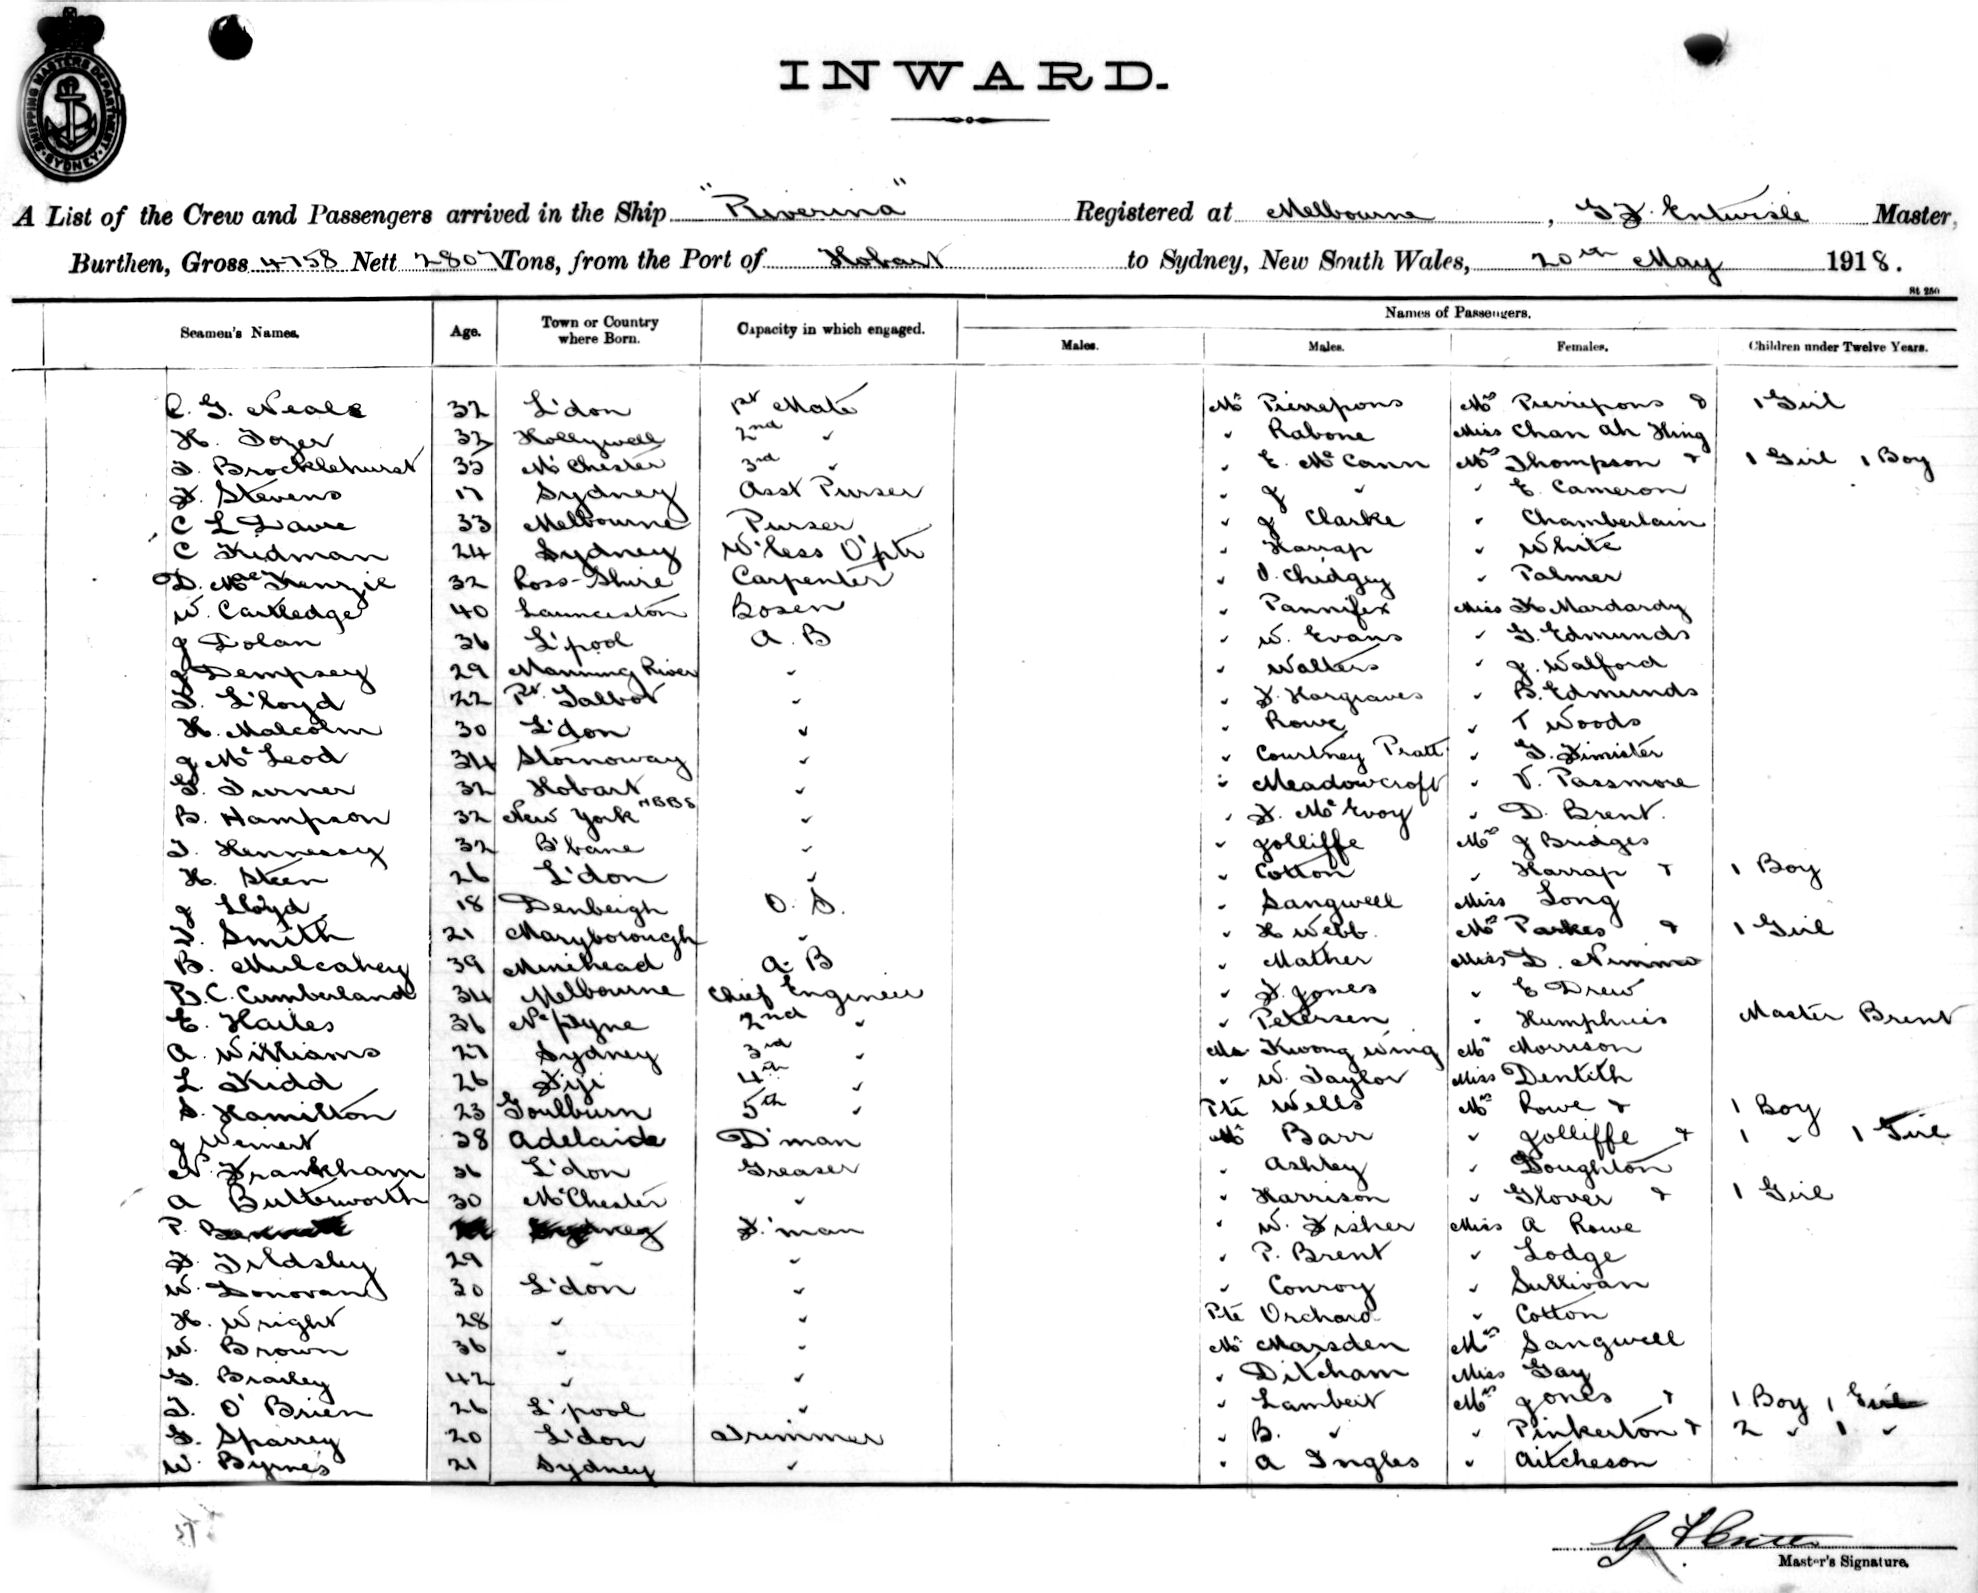 SHIPPING MASTERS DEPARTMENT SYDNEY
INWARD.
A List of the Crew and Passengers arrived in the Ship "Riverina" Registered at Melbourne, G F Entwisle Master,
Burthen, Gross 4758 Nett 2807 Tons, from the Port of Hobart to Sydney, New South Wales, 20th May 1918.
St 250
Names of Passengers.
Seamen's Names. Age. Town or Country where Born. Capacity in which engaged. Males. Males. Females. Children under Twelve Years.
C. G. Neale 32 L'don 1st Mate Mr Pierrepons Mrs Pierrepons & 1 Girl
H. Tozer 32 Hollywell 2nd " " Rabone Miss Chan Ah Hing
T. Brocklehurst 33 M'Chester 3rd " " E. McCann Mrs Thompson & 1 Girl 1 Boy
F. Stevens 17 Sydney Asst Purser " J " " E. Cameron
C L Davre 33 Melbourne Purser " J Clarke " Chamberlain
C Kidman 24 Sydney W'less O'ptr " Harrap " White
D. McKenzie 32 Ross-Shire Carpenter " Chidgey " Palmer
W. Cartledge 40 Launceston Bosen " Pannifex Miss H Mardardy
J Dolan 36 L'pool A. B " W. Evans " G. Edmunds
J Dempsey 29 Manning River " " Walters " J. Walford
T. L'loyd 22 Pt Talbot " " F. Hargraves " B. Edmunds
H. Malcolm 30 L'don " " Rowe " T Woods
J. McLeod 34 Stornoway " " Courtney Pratt " G. Fimister
G. Turner 32 Hobart " " Meadowcroft " V. Passmore
B. Hampson 32 New York NBBS " " F. McEvoy " D. Brent.
T. Hennessy 32 B'bane " " Jolliffe Mrs J Bridges
H. Steen 26 L'don " " Cotton " Harrap & 1 Boy
J Lloyd 18 Denbeigh O. S. " Sangwell Miss Long
Smith 21 Maryborough " " H Webb. Mrs Parkes & 1 Girl
B. Mulcahey 39 Minehead A. B " Mather Miss D. Nimmo
B. C. Cumberland 34 Melbourne Chief Engineer " F. Jones " E Drew
E. Hailes 36 Nc/tyne 2nd " " Petersen " Humphries Master Brent
A. Williams 27 Sydney 3rd " Kwong Wing Mrs Morrison
L. Kidd 26 Fiji 4th " " W. Taylor Miss Dentith
S. Hamilton 23 Goulburn 5th " Pte Wells Mrs Rowe & 1 Boy
J Weinert 38 Adelaide D'man Mr Barr " Jolliffe & 1 " 1 Girl
N. Frankham 36 L'don Greaser " Ashley " Doughton
A Butterworth 30 M'Chester " " Harrison " Glover & 1 Girl
P. Sydney F.'man " W. Fisher Miss A Rowe
F. Tildsley 29 " " " P. Brent " Lodge
W. Donovan 30 L'don " " Conroy " Sullivan
H. Wright 28 " " Pte Orchard " Cotton
W. Brown 36 " " Mr Marsden Mrs Sangwell
G. Brailey 42 " " " Ditcham Miss Gay
T. O'Brien 26 L'pool " " Lambert Mrs Jones & 1 Boy 1 Girl
G. Sparrey 20 L'don Trimmer " B. " " Pinkerton & 2 " 1 "
W. Byrnes 21 Sydney " " A Ingles " Aitcheson
Master's Signature.